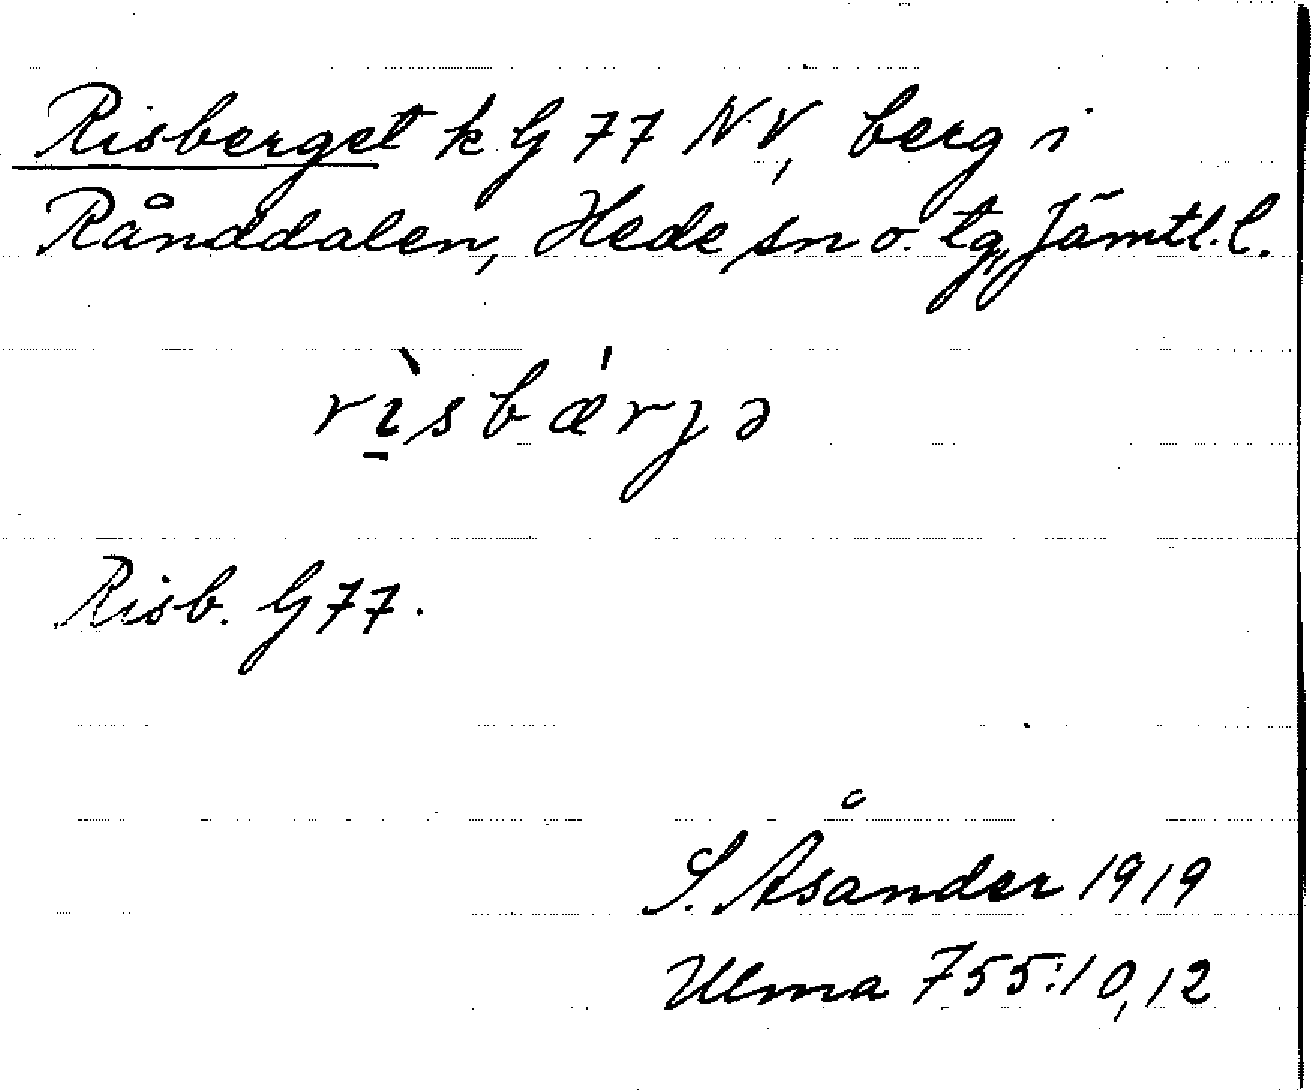 Risberget k G 77 NV, berg i
Rånddalen, Hede sn o. tg, Jämtl. l.
rı̱̀sbǽrjə
Risb. G 77.
S. Åsander 1919
Ulma 755:10,12